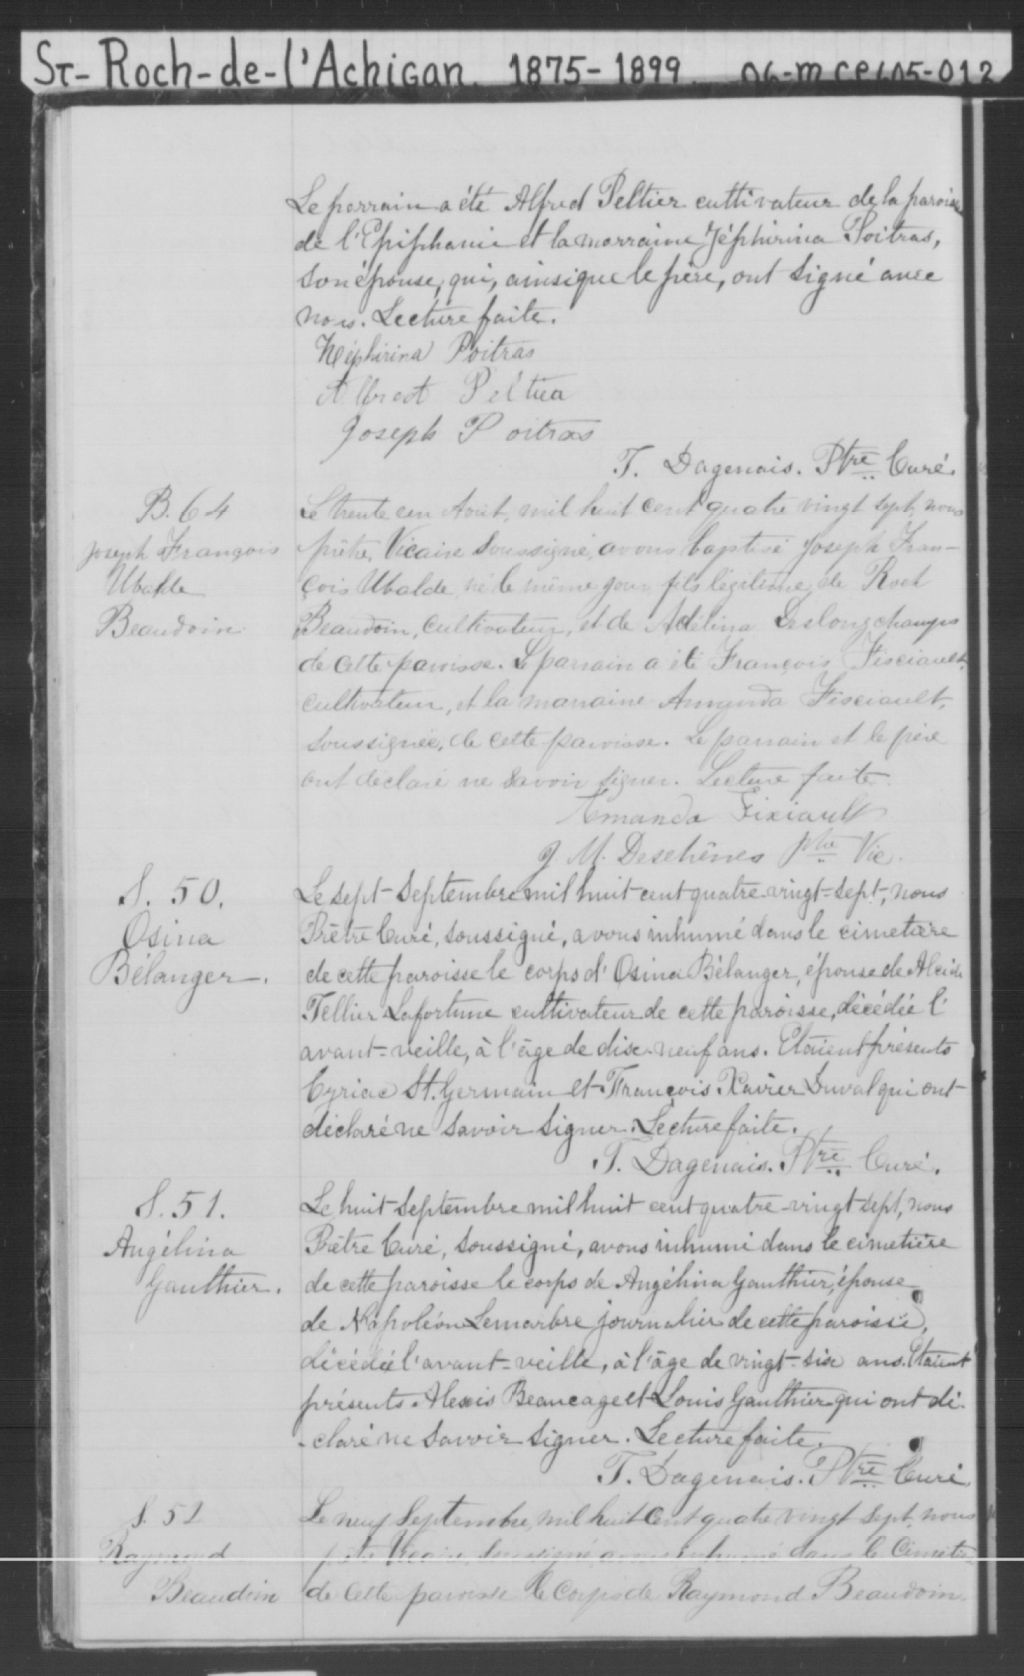 St-Roch-de-l'Achigan. 1875-1899. 06-M CE605-012
Le parrain a été Alfred Peltier cultivateur de la paroisse
de l'Epiphanie et la marraine Zéphirina Poitras,
son épouse, qui, ainsi que le père, ont signé avec
nous. Lecture faite.
Zéphirina Poitras
Alfred Peltier
Joseph Poitras
T. Dagenais. Ptre Curé.
B. 64
Joseph François
Ubalde
Beaudoin
Le trente un Août, mil huit cent quatre vingt sept, nous
prêtre, Vicaire soussigné, avons baptisé Joseph Fran-
çois Ubalde, né le même jour, fils légitime de Roch
Beaudoin, cultivateur, et de Adélina Deslongchamps
de cette paroisse. Le parrain a été François Fisciault,
cultivateur, et la marraine Amanda Fisciault,
soussignée, de cette paroisse. Le parrain et le père
ont déclaré ne savoir signer. Lecture faite.
Amanda Fixiault
J. M. Deschênes ptre Vic.
S. 50.
Osina
Bélanger.
Le sept Septembre mil huit cent quatre-vingt-sept, nous
Prêtre Curé, soussigné, avons inhumé dans le cimetière
de cette paroisse le corps d'Osina Bélanger, épouse de Alcide
Tellier Lafortune cultivateur de cette paroisse, décédée l'
avant-veille, à l'âge de dix-neuf ans. Etaient présents
Cyriac St. Germain et François Xavier Duval qui ont
déclaré ne savoir signer. Lecture faite.
T. Dagenais. Ptre Curé.
S. 51.
Angélina
Gauthier.
Le huit Septembre mil huit cent quatre-vingt sept, nous
Prêtre Curé, soussigné, avons inhumé dans le cimetière
de cette paroisse le corps de Angélina Gauthier, épouse
de Napoléon Lemarbre journalier de cette paroisse,
décédée l'avant-veille, à l'âge de vingt-six ans. Etaient
présents Alexis Beaucage et Louis Gauthier qui ont dé-
-claré ne savoir signer. Lecture faite.
T. Dagenais. Ptre Curé
S. 52
Raymond
Beaudoin
Le neuf Septembre, mil huit cent quatre vingt sept, nous
prêtre Vicaire, soussigné avons inhumé dans le cimetière
de cette paroisse le corps de Raymond Beaudoin